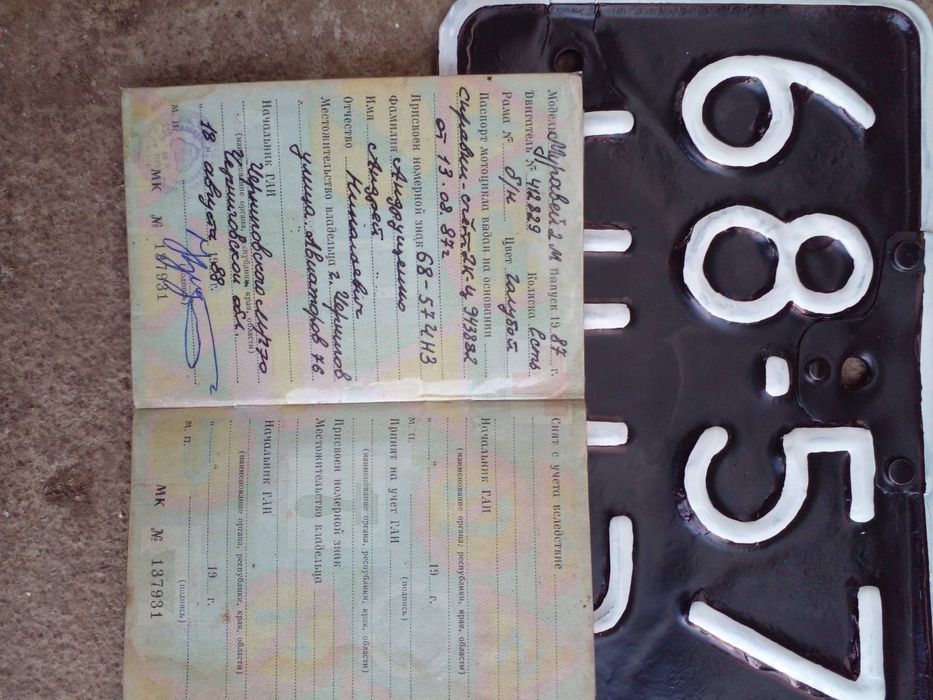 Модель Муравей 2М Выпуск 1987 г.
Двигатель № 412829 Коляска Есть
Рама № б/н Цвет голубой
Паспорт мотоцикла выдан на основании
справки-счёт 2К-Ц 943882
от 13.08.87г
Присвоен номерной знак 68-57 ЧНЗ
Фамилия Андрущенко
Имя Андрей
Отчество Николаевич
Местожительство владельца г. Чернигов
улица Авиаторов 76
Начальник ГАИ
Черниговского
(наименование органа, республики, края, области)
Черниговской обл.
18 августа 1988г.
(подпись)
М. П.
МК № 137931
Снят с учета вследствие
Начальник ГАИ
(наименование органа, республики, края, области)
М. П. " " 19 г.
(подпись)
Принят на учет ГАИ
(наименование органа, республики, края, области)
Присвоен номерной знак
Местожительство владельца
Начальник ГАИ
(наименование органа, республики, края, области)
" " 19 г.
М. П.
(подпись)
МК № 137931
68-57